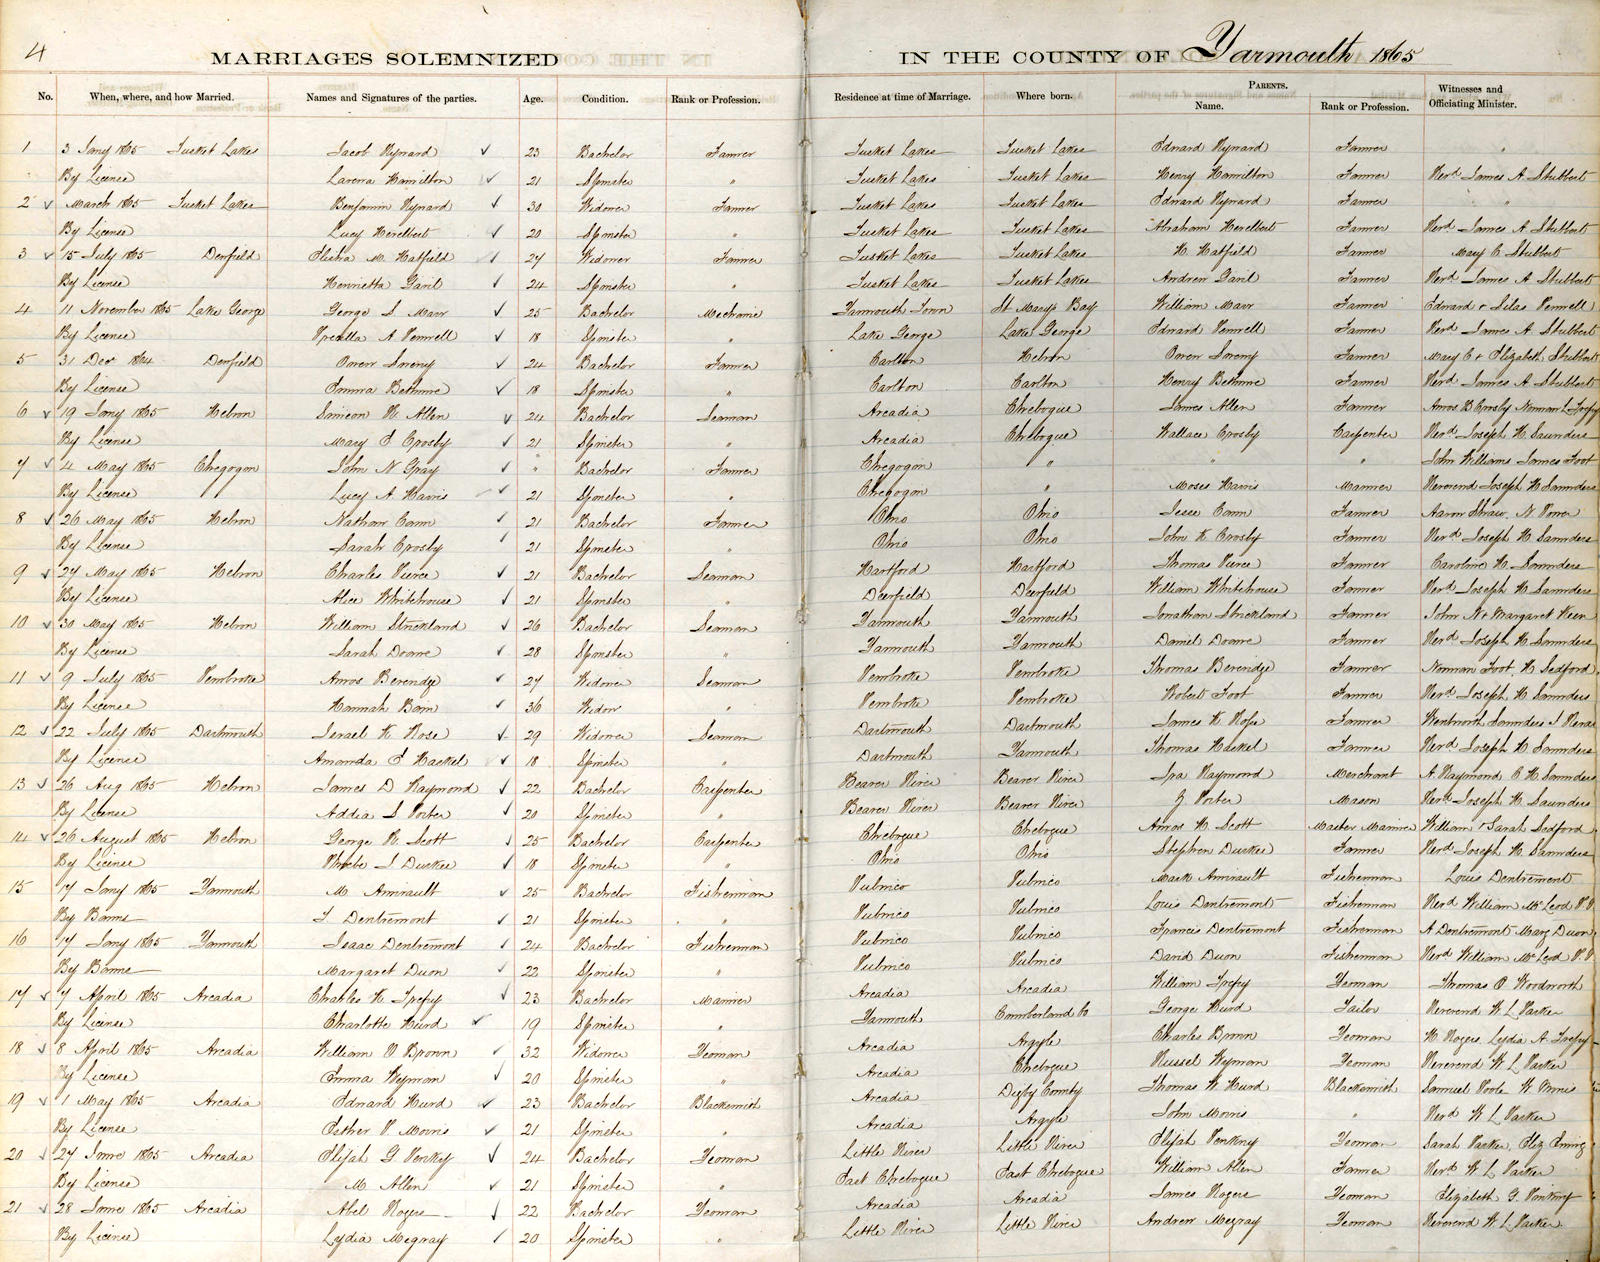 4
MARRIAGES SOLEMNIZED IN THE COUNTY OF Yarmouth 1865
No. When, where, and how Married. Names and Signatures of the parties. Age. Condition. Rank or Profession. Residence at time of Marriage. Where born. PARENTS. Name. Rank or Profession. Witnesses and Officiating Minister.
1 3 Jany 1865 Tusket Lakes Jacob Nynard 23 Bachelor Farmer Tusket Lakes Tusket Lakes Edward Nynard Farmer "
By License Lavena Hamilton 21 Spinster " Tusket Lakes Tusket Lakes Henry Hamilton Farmer Revd James A Stubbert
2 March 1865 Tusket Lakes Benjamin Nynard 30 Widower Farmer Tusket Lakes Tusket Lakes Edward Nynard Farmer "
By License Lucy Herelbert 20 Spinster " Tusket Lakes Tusket Lakes Abraham Herelbert Farmer Revd James A Stubbert
3 15 July 1865 Derfield Elisha M. Hatfield 27 Widower Farmer Tusket Lakes Tusket Lakes H. Hatfield Farmer Mary C Stubbert
By License Henrietta Gavil 24 Spinster " Tusket Lakes Tusket Lakes Andrew Gavil Farmer Revd James A Stubbert
4 11 November 1865 Lake George George S Marr 25 Bachelor Mechanic Yarmouth Town St Marys Bay William Marr Farmer Edward & Silas Penrell
By License A Penrell 18 Spinster " Lake George Lake George Edward Penrell Farmer Revd James A Stubbert
5 31 Decr 1864 Derfield Owen Sweny 24 Bachelor Farmer Carlton Hebron Owen Sweny Farmer Mary C & Elizabeth Stubbert
By License Emma Bethune 18 Spinster " Carlton Carlton Henry Bethune Farmer Revd James A Stubbert
6 19 Jany 1865 Hebron Simeon R. Allen 24 Bachelor Seaman Arcadia Chebogue James Allen Farmer Amos B Crosby Norman L Trefry
By License Mary E Crosby 21 Spinster " Arcadia Chebogue Wallace Crosby Carpenter Revd Joseph H Saunders
7 4 May 1865 Chegogon John N Gray " Bachelor Farmer Chegogon " " " John Williams James Foot
By License Lucy A Harris 21 Spinster " Chegogon " Moses Harris Mariner Reverend Joseph H Saunders
8 26 May 1865 Hebron Nathan Cann 21 Bachelor Farmer Ohio Ohio Jesse Cann Farmer Aaron Shaw. N Power
By License Sarah Crosby 21 Spinster " Ohio Ohio John K Crosby Farmer Revd Joseph H Saunders
9 27 May 1865 Hebron Charles Pierce 21 Bachelor Seaman Hartford Hartford Thomas Pierce Farmer Caroline H Saunders
By License Alice Whitehouse 21 Spinster " Deerfield Deerfield William Whitehouse Farmer Revd Joseph H Saunders
10 30 May 1865 Hebron William Strickland 26 Bachelor Seaman Yarmouth Yarmouth Jonathan Strickland Farmer John N & Margaret Keen
By License Sarah Doane 28 Spinster " Yarmouth Yarmouth Daniel Doane Farmer Revd Joseph H Saunders
11 9 July 1865 Pembroke Amos Beveridge 27 Widower Seaman Pembroke Pembroke Thomas Beveridge Farmer Norman Foot. H Sedford
By License Hannah Bain 36 Widow " Pembroke Pembroke Robert Foot Farmer Revd Joseph H Saunders
12 22 July 1865 Dartmouth Israel K Rose 29 Widower Seaman Dartmouth Dartmouth James K Rose Farmer Wentworth Saunders
By License Amanda E Hackel 18 Spinster " Dartmouth Yarmouth Thomas Haskel Farmer Revd Joseph H Saunders
13 26 Aug 1865 Hebron James D Raymond 22 Bachelor Carpenter Beaver River Beaver River Ira Raymond Merchant A. Raymond C H. Saunders
By License Addia S Porter 20 Spinster " Beaver River Beaver River Z Porter Mason Revd Joseph H. Saunders
14 26 August 1865 Hebron George R. Scott 25 Bachelor Carpenter Chebogue Chebogue Amos H. Scott Master Mariner William & Sarah Sedford
By License Phoebe S Durkee 18 Spinster " Ohio Ohio Stephen Durkee Farmer Revd Joseph H. Saunders
15 17 Jany 1865 Yarmouth M. Amirault 25 Bachelor Fisherman Pubnico Pubnico Mark Amirault Fisherman Louis Dentremont
By Banns T Dentremont 21 Spinster " Pubnico Pubnico Louis Dentremont Fisherman Revd William McLeod P.P
16 17 Jany 1865 Yarmouth Isaac Dentremont 24 Bachelor Fisherman Pubnico Pubnico Francis Dentremont Fisherman A Dentremont Mary Duon
By Banns Margaret Duon 22 Spinster " Pubnico Pubnico David Duon Fisherman Revd William McLeod P.P
17 7 April 1865 Arcadia Charles K Trefry 23 Bachelor Mariner Arcadia Arcadia William Trefry Yeoman Thomas O Woodworth
By License Charlotte Hurd 19 Spinster " Yarmouth Cumberland Co George Hurd Tailor Reverend W. L Parker
18 8 April 1865 Arcadia William O Brown 32 Widower Yeoman Arcadia Argyle Charles Brown Yeoman H. Rogers, Lydia A. Trefry
By License Emma Wyman 20 Spinster " Arcadia Chebogue Russel Wyman Yeoman Reverend W L Parker
19 1 May 1865 Arcadia Edward Hurd 23 Bachelor Blacksmith Arcadia Digby County Thomas W. Hurd Blacksmith Samuel Poole
By License Esther P. Morris 21 Spinster " Arcadia Argyle John Morris " Revd W. L Parker
20 27 June 1865 Arcadia Elijah G Penkny 24 Bachelor Yeoman Little River Little River Elijah Penkny Yeoman Sarah Parker,
By License M Allen 21 Spinster " East Chebogue East Chebogue William Allen Farmer Revd W. L Parker
21 28 June 1865 Arcadia Abel Rogers 22 Bachelor Yeoman Arcadia Arcadia James Rogers Yeoman Elizabeth G. Pinkney
By License Lydia Megray 20 Spinster " Little River Little River Andrew Megray Yeoman Reverend W. L Parker